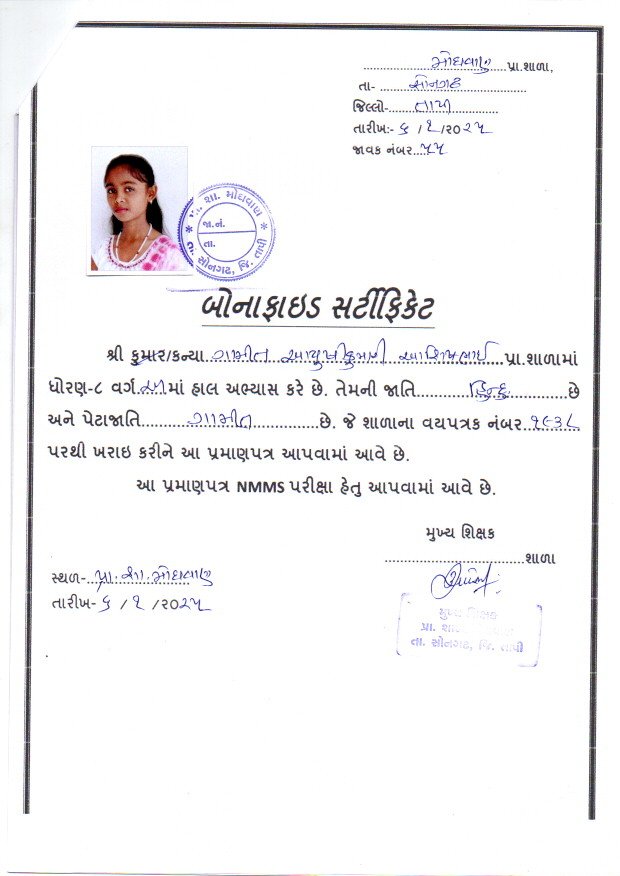 મોઘવાણ પ્રા.શાળા,
તા- સોનગઢ
જિલ્લો- તાપી
તારીખ:- ૬ / ૧ /૨૦૨૫
જાવક નંબર...૫૫
પ્રા. શા. મોઘવાણ
જા.નં.
તા.
તા. સોનગઢ, જિ. તાપી
બોનાફાઇડ સર્ટીફિકેટ
શ્રી કુમાર/કન્યા ગામીત આયુષીકુમારી આશિષભાઈ પ્રા.શાળામાં
ધોરણ-૮ વર્ગ માં હાલ અભ્યાસ કરે છે. તેમની જાતિ હિન્દુ છે
અને પેટાજાતિ ગામીત છે. જે શાળાના વયપત્રક નંબર ૧૯૩૮
પરથી ખરાઇ કરીને આ પ્રમાણપત્ર આપવામાં આવે છે.
આ પ્રમાણપત્ર NMMS પરીક્ષા હેતુ આપવામાં આવે છે.
મુખ્ય શિક્ષક
શાળા
સ્થળ- પ્રા. શા. મોઘવાણ
તારીખ- ૬ / ૧ /૨૦૨૫
મુખ્ય શિક્ષક
પ્રા. શાળા
તા. સોનગઢ, જિ. તાપી